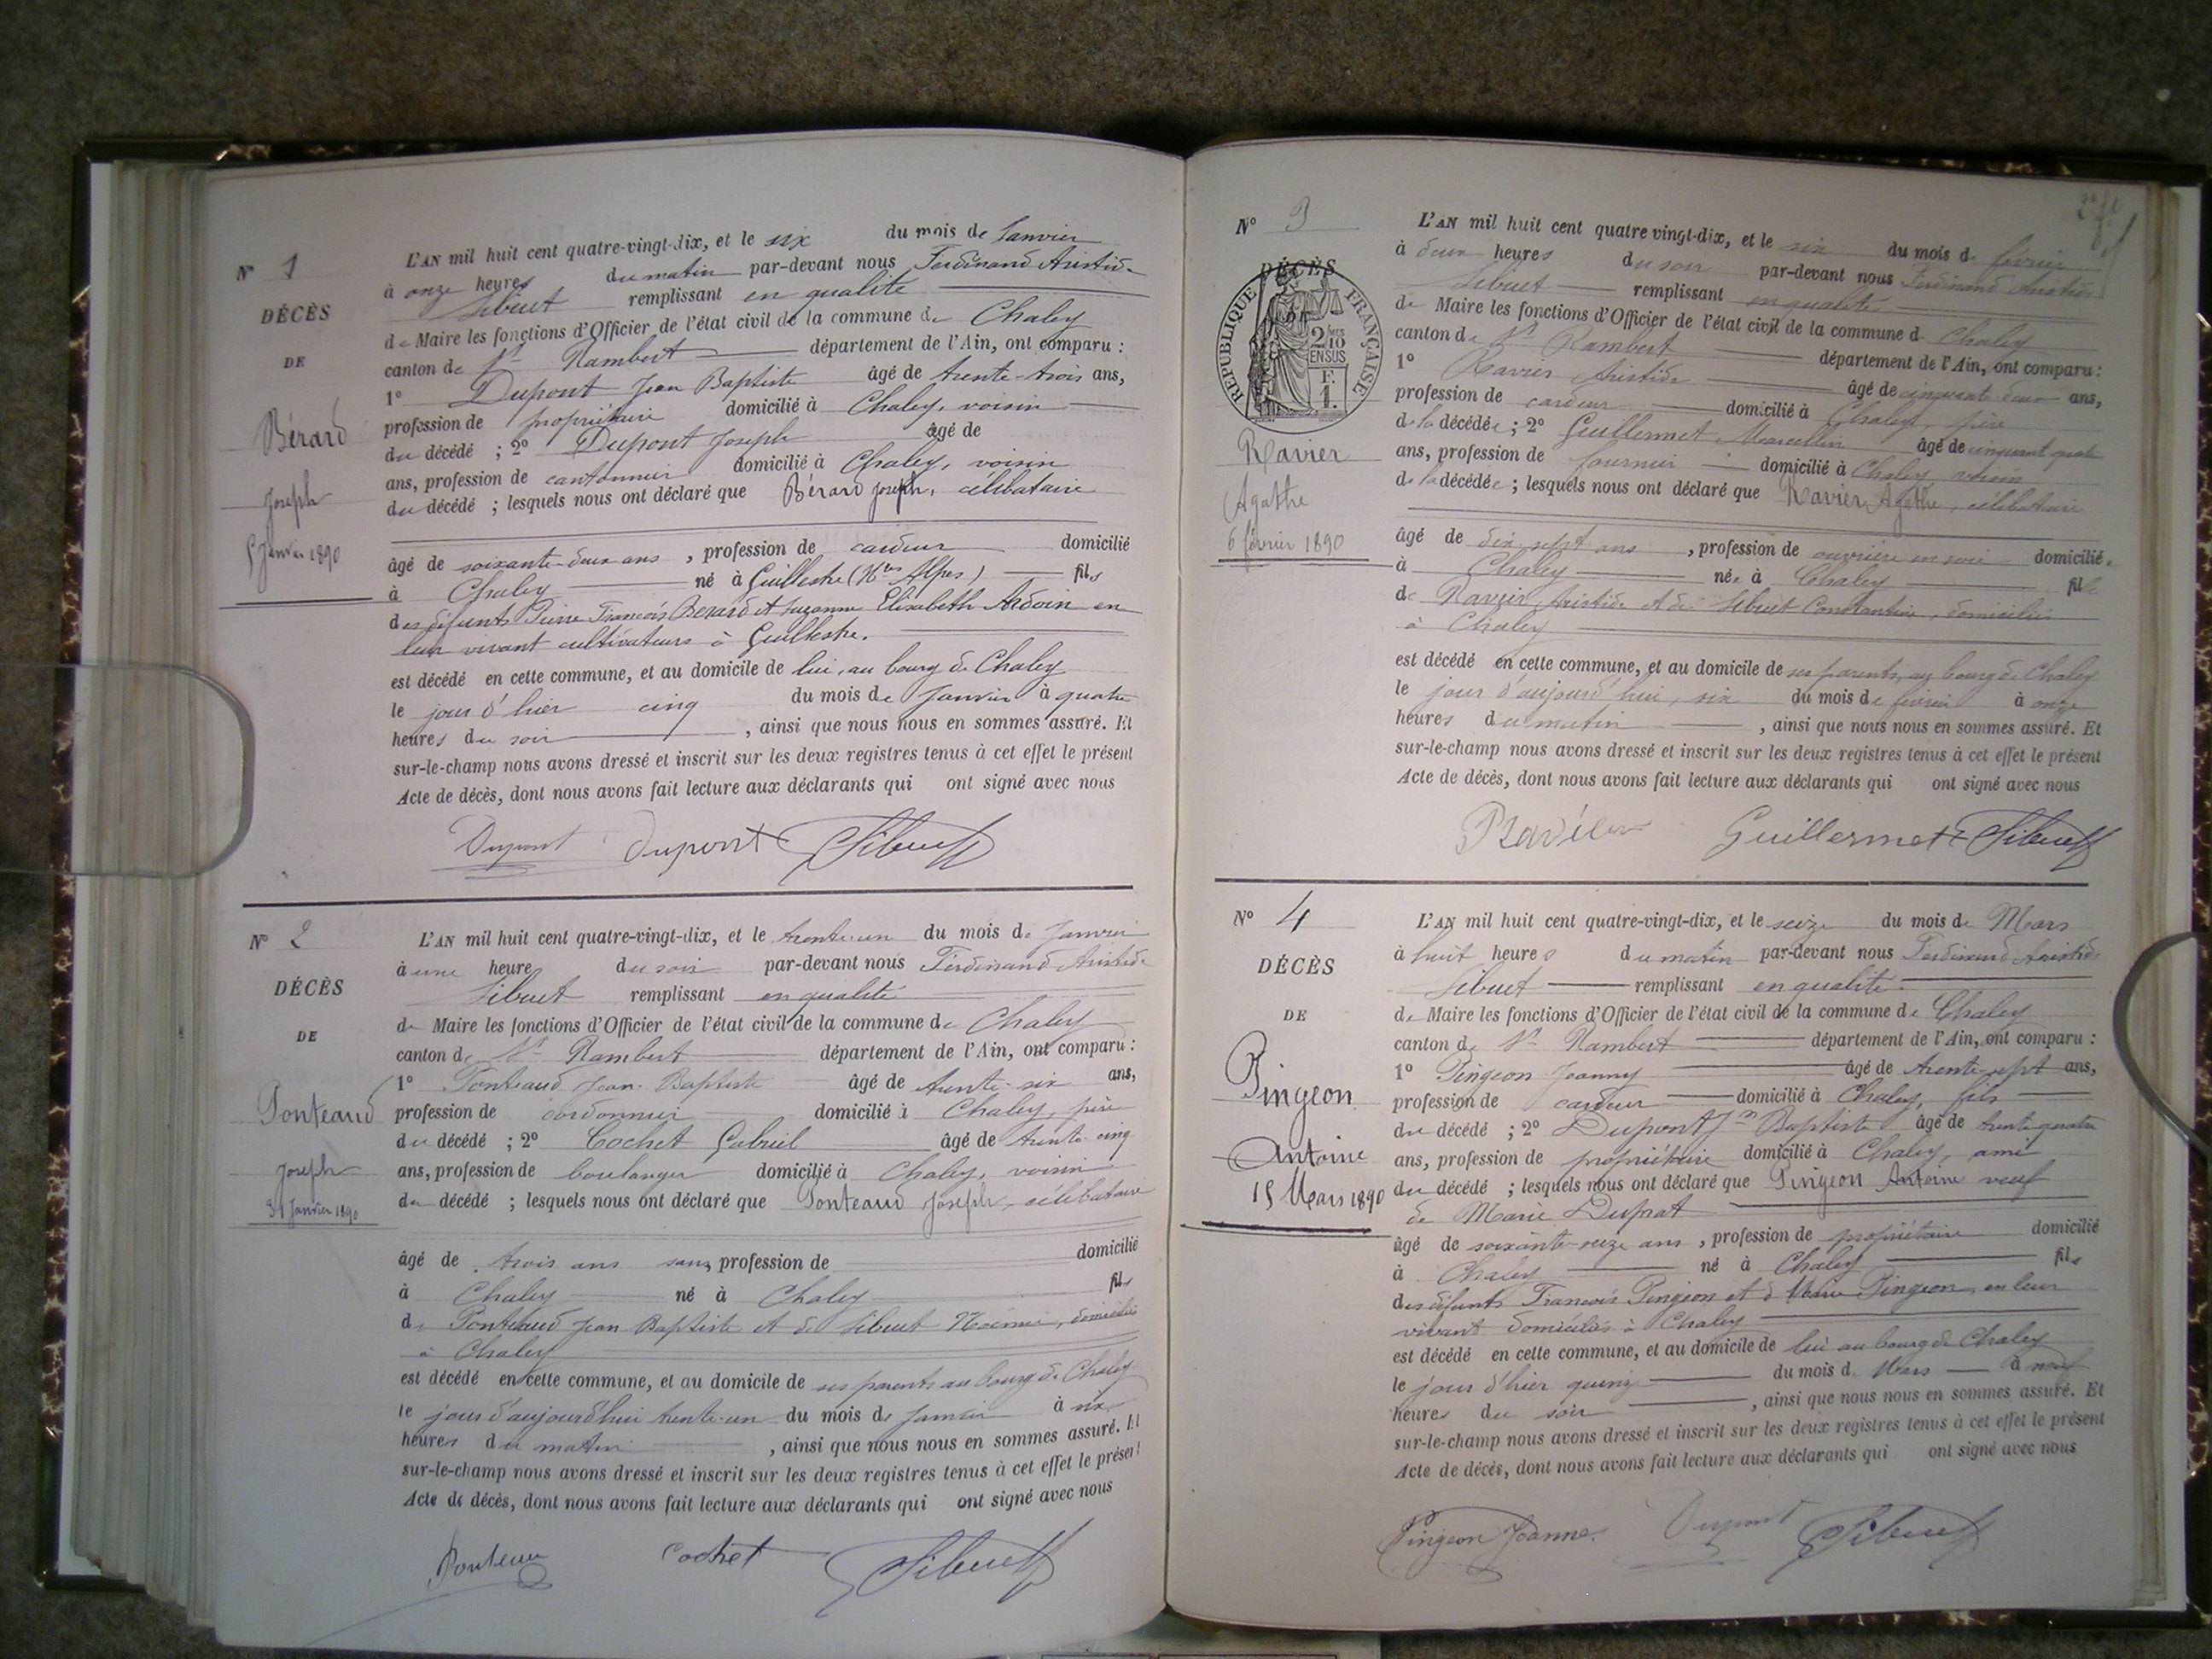 N° 1
DÉCÈS
DE
Bérard
Joseph
5 Janvier 1890
L'AN mil huit cent quatre-vingt-dix, et le six du mois de Janvier
à onze heures du matin par-devant nous Ferdinand Aristide
Sibuet remplissant en qualité
de Maire les fonctions d'Officier de l'état civil de la commune de Chaley
canton de St Rambert département de l'Ain, ont comparu :
1° Dupont Jean Baptiste âgé de trente-trois ans,
profession de propriétaire domicilié à Chaley, voisin
du décédé ; 2° Dupont Joseph âgé de
ans, profession de cantonnier domicilié à Chaley, voisin
du décédé ; lesquels nous ont déclaré que Bérard Joseph, célibataire
âgé de soixante-deux ans , profession de cardeur domicilié
à Chaley né à Guillestre (Htes Alpes) fils
des défunts Pierre François Bérard et Suzanne Elisabeth Ardoin en
leur vivant cultivateurs à Guillestre.
est décédé en cette commune, et au domicile de lui, au bourg de Chaley
le jour d'hier cinq du mois de Janvier à quatre
heures du soir , ainsi que nous nous en sommes assuré. Et
sur-le-champ nous avons dressé et inscrit sur les deux registres tenus à cet effet le présent
Acte de décès, dont nous avons fait lecture aux déclarants qui ont signé avec nous
Dupont Dupont Sibuet
N° 2
DÉCÈS
DE
Ponteaud
Joseph
31 Janvier 1890
L'AN mil huit cent quatre-vingt-dix, et le trente-un du mois de Janvier
à une heure du soir par-devant nous Ferdinand Aristide
Sibuet remplissant en qualité
de Maire les fonctions d'Officier de l'état civil de la commune de Chaley
canton de St Rambert département de l'Ain, ont comparu :
1° Ponteaud Jean-Baptiste âgé de trente-six ans,
profession de cordonnier domicilié à Chaley, père
du décédé ; 2° Cochet Gabriel âgé de trente-cinq
ans, profession de boulanger domicilié à Chaley, voisin
du décédé ; lesquels nous ont déclaré que Ponteaud Joseph, célibataire
âgé de trois ans sans profession de domicilié
à Chaley né à Chaley fils
de Ponteaud Jean Baptiste et de Sibuet Noémie, domiciliés
à Chaley
est décédé en cette commune, et au domicile de ses parents au bourg de Chaley
le jour d'aujourd'hui trente-un du mois de Janvier à six
heures du matin , ainsi que nous nous en sommes assuré. Et
sur-le-champ nous avons dressé et inscrit sur les deux registres tenus à cet effet le présent
Acte de décès, dont nous avons fait lecture aux déclarants qui ont signé avec nous
Cochet Sibuet
N° 3
DÉCÈS
RÉPUBLIQUE FRANÇAISE
2 MES
10
EN SUS
F.
1.
Ravier
Agathe
6 février 1890
L'AN mil huit cent quatre vingt-dix, et le six du mois de février
à deux heures du soir par-devant nous Ferdinand Aristide
Sibuet remplissant en qualité
de Maire les fonctions d'Officier de l'état civil de la commune de Chaley
canton de St Rambert département de l'Ain, ont comparu :
1° Ravier Aristide âgé de cinquante-deux ans,
profession de cardeur domicilié à Chaley, père
de la décédée ; 2° Guillermet Marcellin âgé de cinquante quatre
ans, profession de fournier domicilié à Chaley, voisin
de la décédée ; lesquels nous ont déclaré que Ravier Agathe, célibataire
âgé de dix sept ans , profession de ouvrière en soie domiciliée
à Chaley née à Chaley fille
de Ravier Aristide et de Sibuet Constantine, domiciliés
à Chaley
est décédé en cette commune, et au domicile de ses parents, au bourg de Chaley
le jour d'aujourd'hui, six du mois de février à onze
heures du matin , ainsi que nous nous en sommes assuré. Et
sur-le-champ nous avons dressé et inscrit sur les deux registres tenus à cet effet le présent
Acte de décès, dont nous avons fait lecture aux déclarants qui ont signé avec nous
Guillermet Sibuet
N° 4
DÉCÈS
DE
Pingeon
Antoine
15 Mars 1890
L'AN mil huit cent quatre-vingt-dix, et le seize du mois de Mars
à huit heures du matin par-devant nous Ferdinand Aristide
Sibuet remplissant en qualité
de Maire les fonctions d'Officier de l'état civil de la commune de Chaley
canton de St Rambert département de l'Ain, ont comparu :
1° Pingeon Joanny âgé de trente-sept ans,
profession de cardeur domicilié à Chaley, fils
du décédé ; 2° Dupont Jn Baptiste âgé de trente quatre
ans, profession de propriétaire domicilié à Chaley, ami
du décédé ; lesquels nous ont déclaré que Pingeon Antoine veuf
de Marie Duprat
âgé de soixante-seize ans , profession de propriétaire domicilié
à Chaley né à Chaley fils
des défunts François Pingeon et de Marie Pingeon, en leur
vivant domiciliés à Chaley
est décédé en cette commune, et au domicile de lui au bourg de Chaley
le jour d'hier quinze du mois de Mars à neuf
heures du soir , ainsi que nous nous en sommes assuré. Et
sur-le-champ nous avons dressé et inscrit sur les deux registres tenus à cet effet le présent
Acte de décès, dont nous avons fait lecture aux déclarants qui ont signé avec nous
Pingeon Dupont Sibuet